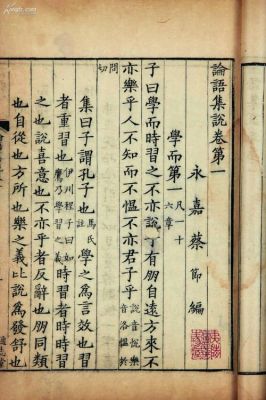 論語集說卷第一
永嘉蔡節編
學而第一凡十六章
子曰學而時習之不亦說乎有朋自遠方來不
亦樂乎人不知而不慍不亦君子乎說音悅樂音洛慍於
問切
集曰子謂孔子也馬氏註學之爲言效也習
者重習也伊川程子曰如鷹乃學習之義時習者時時習
之也說喜意也不亦乎者反辭也朋同類
也自從也方所也樂之義比說爲發舒也
通志堂